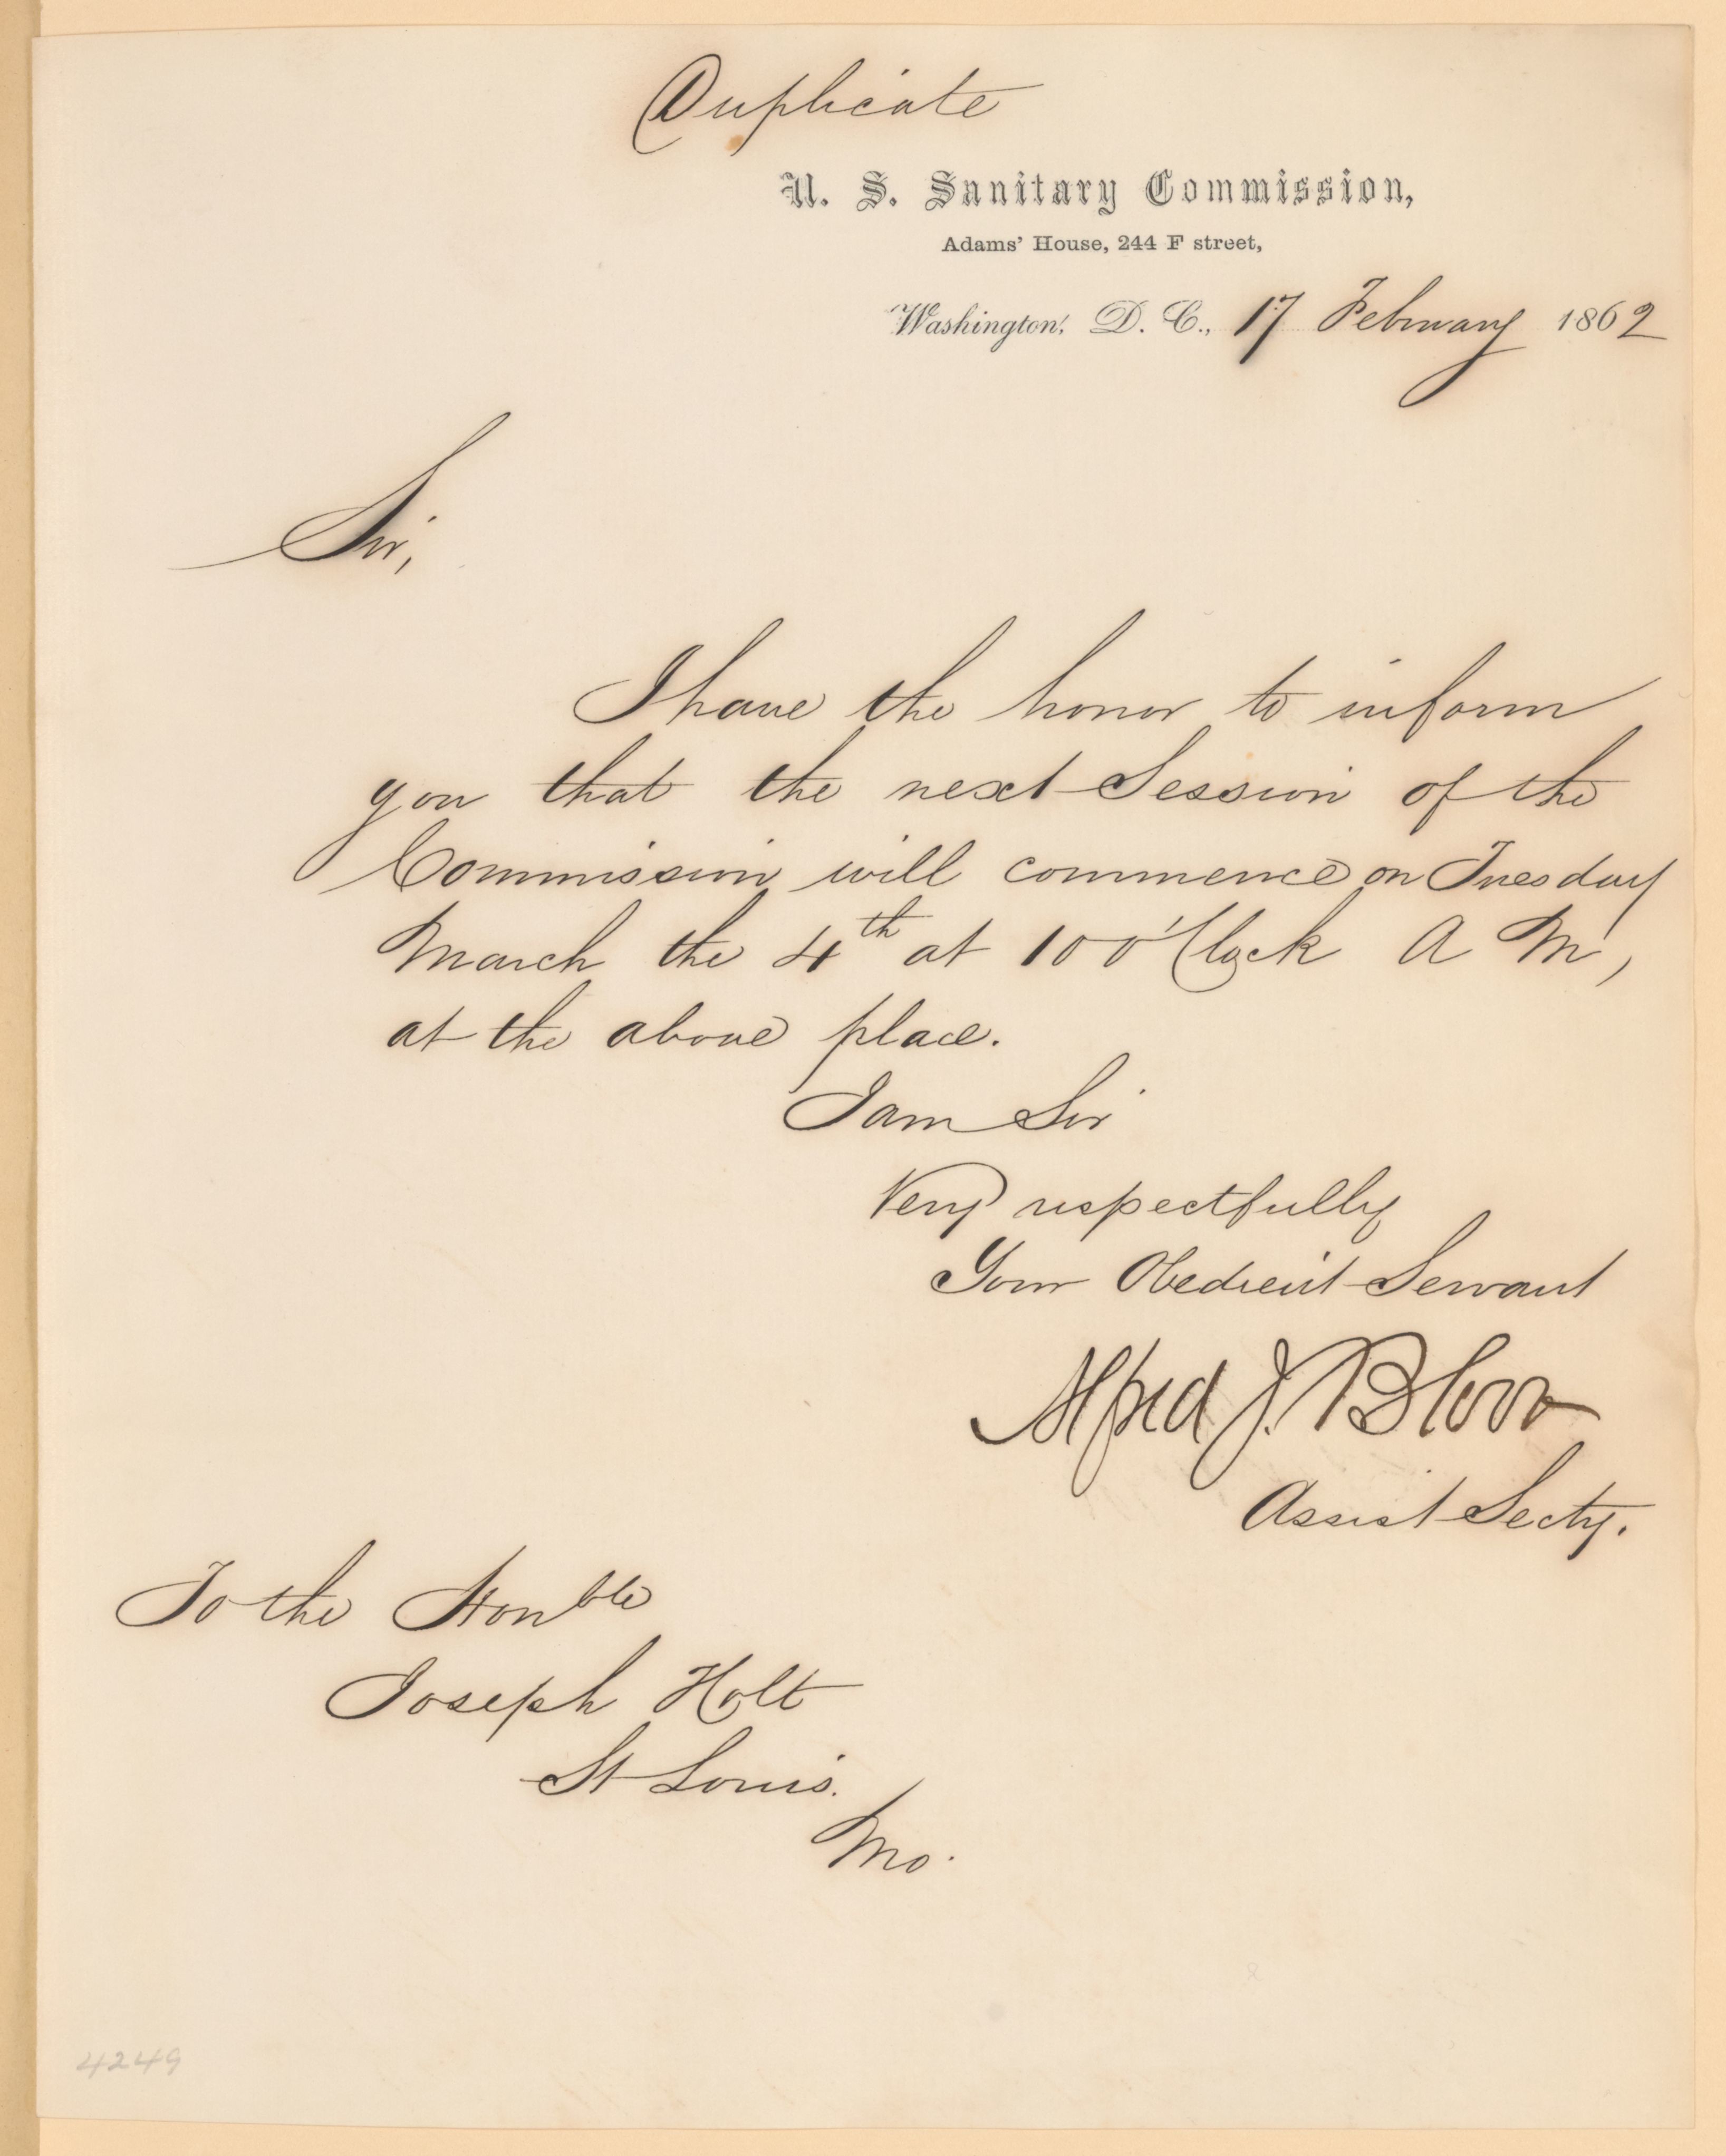 Duplicate
U. S. Sanitary Commission,
Adams' House, 244 F street,
Washington, D. C., 17 February 1862
Sir,
I have the honor to inform
you that the next Session of the
Commission will commence on Tuesday
March the 4th at 10 o'Clock A M,
at the above place.
I am Sir
Very respectfully
Your Obedient Servant
Alfred J. Bloor
Assist Secty.
To the Honble
Joseph Holt
St Louis.
Mo.
4249